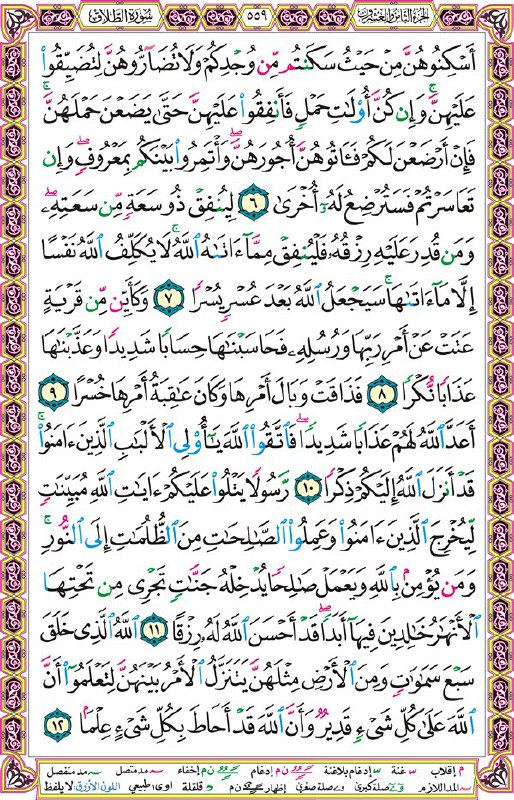 الجزء الثامن والعشرون
٥٥٩
سورة الطلاق
أَسْكِنُوهُنَّ مِنْ حَيْثُ سَكَنتُم مِّن وُجْدِكُمْ وَلَا تُضَآرُّوهُنَّ لِتُضَيِّقُوا۟
عَلَيْهِنَّ ۚ وَإِن كُنَّ أُو۟لَٰتِ حَمْلٍ فَأَنفِقُوا۟ عَلَيْهِنَّ حَتَّىٰ يَضَعْنَ حَمْلَهُنَّ ۚ
فَإِنْ أَرْضَعْنَ لَكُمْ فَـَٔاتُوهُنَّ أُجُورَهُنَّ ۖ وَأْتَمِرُوا۟ بَيْنَكُم بِمَعْرُوفٍ ۖ وَإِن
تَعَاسَرْتُمْ فَسَتُرْضِعُ لَهُۥٓ أُخْرَىٰ ٦ لِيُنفِقْ ذُو سَعَةٍ مِّن سَعَتِهِۦ ۖ
وَمَن قُدِرَ عَلَيْهِ رِزْقُهُۥ فَلْيُنفِقْ مِمَّآ ءَاتَىٰهُ ٱللَّهُ ۚ لَا يُكَلِّفُ ٱللَّهُ نَفْسًا
إِلَّا مَآ ءَاتَىٰهَا ۚ سَيَجْعَلُ ٱللَّهُ بَعْدَ عُسْرٍ يُسْرًا ٧ وَكَأَيِّن مِّن قَرْيَةٍ
عَتَتْ عَنْ أَمْرِ رَبِّهَا وَرُسُلِهِۦ فَحَاسَبْنَٰهَا حِسَابًا شَدِيدًا وَعَذَّبْنَٰهَا
عَذَابًا نُّكْرًا ٨ فَذَاقَتْ وَبَالَ أَمْرِهَا وَكَانَ عَٰقِبَةُ أَمْرِهَا خُسْرًا ٩
أَعَدَّ ٱللَّهُ لَهُمْ عَذَابًا شَدِيدًا ۖ فَٱتَّقُوا۟ ٱللَّهَ يَٰٓأُو۟لِى ٱلْأَلْبَٰبِ ٱلَّذِينَ ءَامَنُوا۟ ۚ
قَدْ أَنزَلَ ٱللَّهُ إِلَيْكُمْ ذِكْرًا ١٠ رَّسُولًا يَتْلُوا۟ عَلَيْكُمْ ءَايَٰتِ ٱللَّهِ مُبَيِّنَٰتٍ
لِّيُخْرِجَ ٱلَّذِينَ ءَامَنُوا۟ وَعَمِلُوا۟ ٱلصَّٰلِحَٰتِ مِنَ ٱلظُّلُمَٰتِ إِلَى ٱلنُّورِ ۚ
وَمَن يُؤْمِنۢ بِٱللَّهِ وَيَعْمَلْ صَٰلِحًا يُدْخِلْهُ جَنَّٰتٍ تَجْرِى مِن تَحْتِهَا
ٱلْأَنْهَٰرُ خَٰلِدِينَ فِيهَآ أَبَدًا ۖ قَدْ أَحْسَنَ ٱللَّهُ لَهُۥ رِزْقًا ١١ ٱللَّهُ ٱلَّذِى خَلَقَ
سَبْعَ سَمَٰوَٰتٍ وَمِنَ ٱلْأَرْضِ مِثْلَهُنَّ يَتَنَزَّلُ ٱلْأَمْرُ بَيْنَهُنَّ لِتَعْلَمُوٓا۟ أَنَّ
ٱللَّهَ عَلَىٰ كُلِّ شَىْءٍ قَدِيرٌ وَأَنَّ ٱللَّهَ قَدْ أَحَاطَ بِكُلِّ شَىْءٍ عِلْمًۢا ١٢
م إقلاب غنة إدغام بلاغنة ن م إدغام ن م إخفاء مد متصل مد منفصل
المد اللازم صلة كبرى صلة صغرى إظهار ن م قلقلة اوى طبيعي اللون الأزرق لا يلفظ